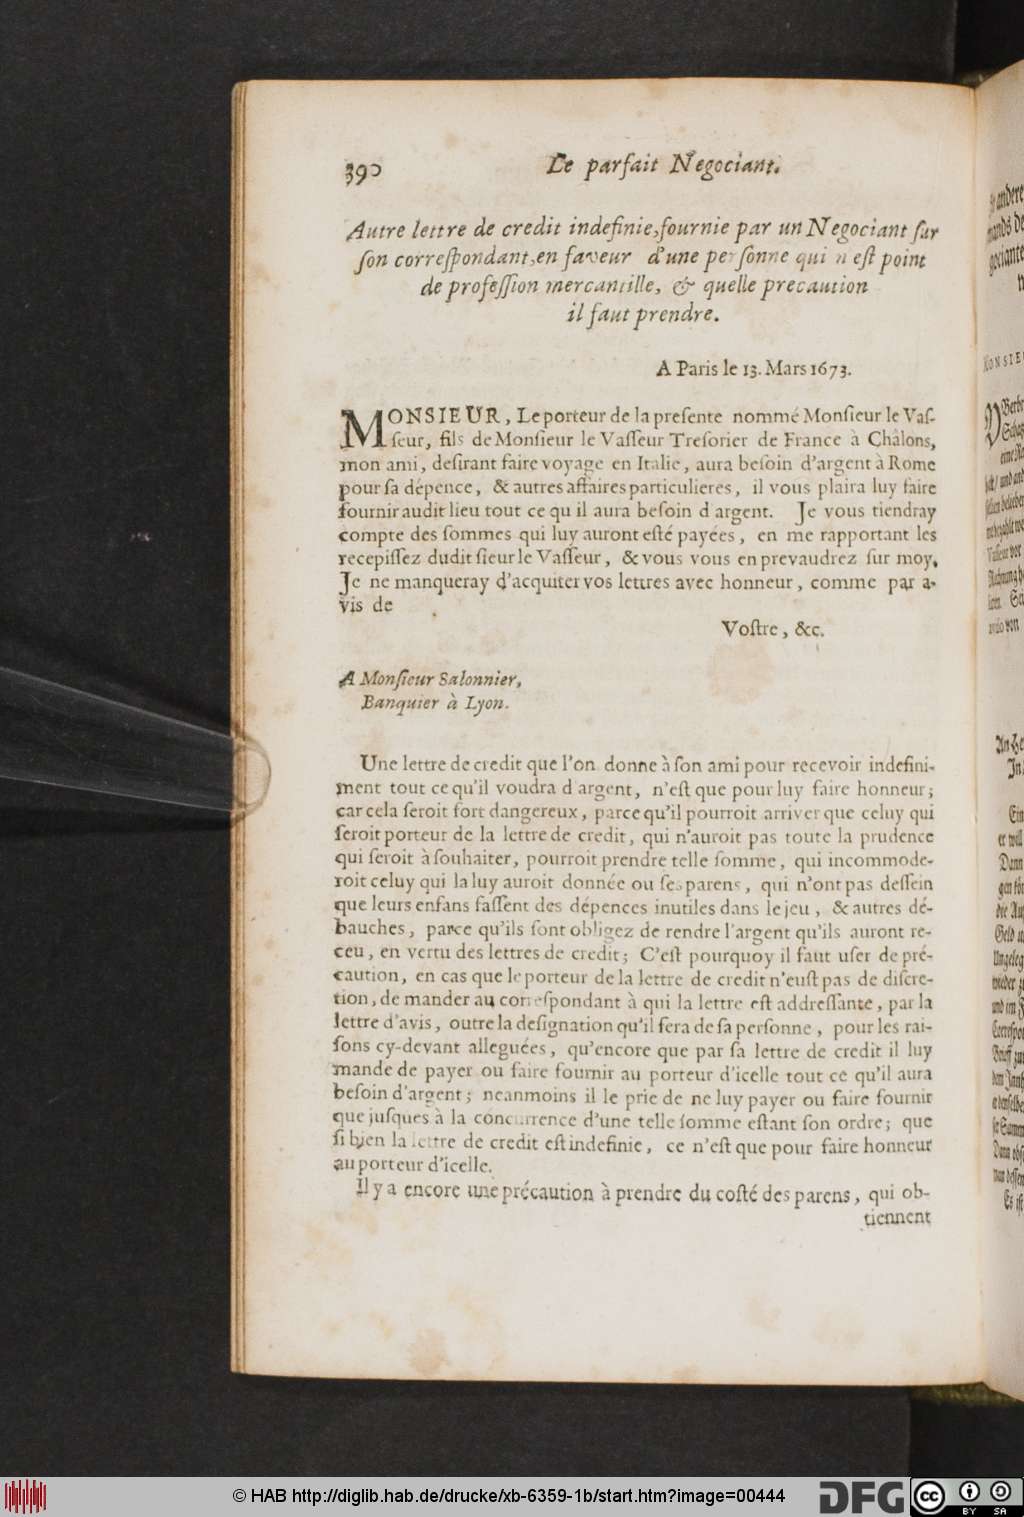 390
Le parfait Negociant.
Autre lettre de credit indefinie, fournie par un Negociant sur
son correspondant, en faveur d'une personne qui n'est point
de profession mercantille, & quelle precaution
il faut prendre.
A Paris le 13. Mars 1673.
MONSIEUR, Le porteur de la presente nommé Monsieur le Vas-
seur, fils de Monsieur le Vasseur Tresorier de France à Châlons,
mon ami, desirant faire voyage en Italie, aura besoin d'argent à Rome
pour sa dépence, & autres affaires particulieres, il vous plaira luy faire
fournir audit lieu tout ce qu il aura besoin d argent. Je vous tiendray
compte des sommes qui luy auront esté payées, en me rapportant les
recepissez dudit sieur le Vasseur, & vous vous en prevaudrez sur moy,
Je ne manqueray d'acquiter vos lettres avec honneur, comme par a-
vis de
Vostre, &c.
A Monsieur Salonnier,
Banquier à Lyon.
Une lettre de credit que l'on donne à son ami pour recevoir indefini-
ment tout ce qu'il voudra d argent, n'est que pour luy faire honneur;
car cela seroit fort dangereux, parce qu'il pourroit arriver que celuy qui
seroit porteur de la lettre de credit, qui n'auroit pas toute la prudence
qui seroit à souhaiter, pourroit prendre telle somme, qui incommode-
roit celuy qui la luy auroit donnée ou ses parens, qui n'ont pas dessein
que leurs enfans fassent des dépences inutiles dans le jeu, & autres dé-
bauches, parce qu'ils sont obligez de rendre l'argent qu'ils auront re-
ceu, en vertu des lettres de credit; C'est pourquoy il faut user de pré-
caution, en cas que le porteur de la lettre de credit n'eust pas de discre-
tion, de mander au correspondant à qui la lettre est addressante, par la
lettre d'avis, outre la designation qu'il fera de sa personne, pour les rai-
sons cy-devant alleguées, qu'encore que par sa lettre de credit il luy
mande de payer ou faire fournir au porteur d'icelle tout ce qu'il aura
besoin d'argent; neanmoins il le prie de ne luy payer ou faire fournir
que jusques à la concurrence d'une telle somme estant son ordre; que
si bien la lettre de credit est indefinie, ce n'est que pour faire honneur
au porteur d'icelle.
Il y a encore une précaution à prendre du costé des parens, qui ob-
tiennent
© HAB http://diglib.hab.de/drucke/xb-6359-1b/start.htm?image=00444
DFG
cc
BY SA